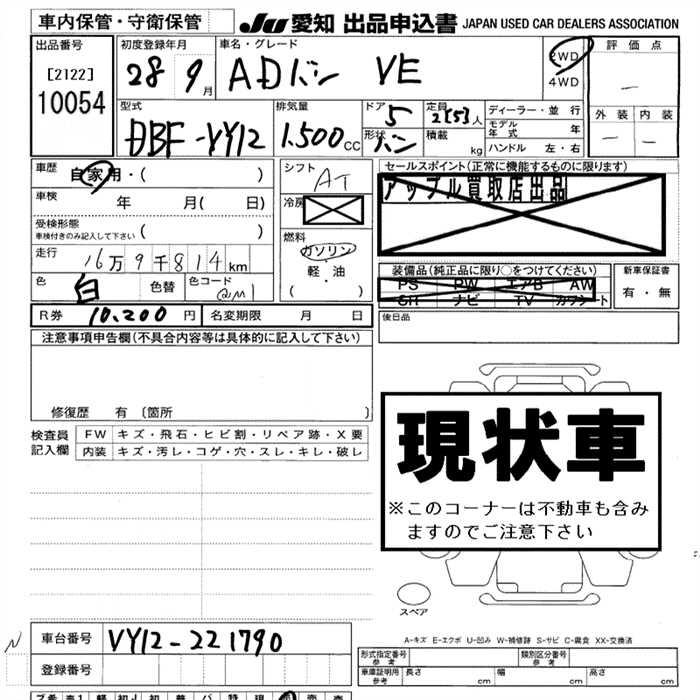 車内保管・守衛保管
JU 愛知 出品申込書 JAPAN USED CAR DEALERS ASSOCIATION
出品番号
[2122]
10054
初度登録年月
28 9月
車名・グレード
ADバン VE
2WD
4WD
評価点
—
外装 内装
— —
型式
DBF-VY12
排気量
1.500cc
ドア 5
形状 バン
定員 2(5)人
積載 kg
ディーラー・並行
モデル年式 年
ハンドル 左・右
車歴
自家用・( )
車検 年 月( 日)
受検形態
車検付きのみ記入して下さい ( )
走行 16万9千814km
色 白 色替 色コード QM1
シフト
AT
冷房
燃料
ガソリン
軽・油
( ・ )
セールスポイント(正常に機能するものに限ります)
アップル買取店出品
装備品(純正品に限り○をつけてください)
PS PW エアB AW
SR ナビ TV カワシート
新車保証書
有・無
R券 10,200円 名変期限 月 日
後日品
注意事項申告欄(不具合内容等は具体的に記入して下さい)
修復歴 有 [箇所 ]
検査員記入欄
FW キズ・飛石・ヒビ割・リペア跡・X要
内装 キズ・汚レ・コゲ・穴・スレ・キレ・破レ
現状車
※このコーナーは不動車も含み
ますのでご注意下さい
スペア
A-キズ E-エクボ U-凹み W-補修跡 S-サビ C-腐食 XX-交換済
N
車台番号 VY12-221790
登録番号
型式指定番号 参考
類別区分番号 参考
車庫証明用 参考 長さ cm 幅 cm 高さ cm